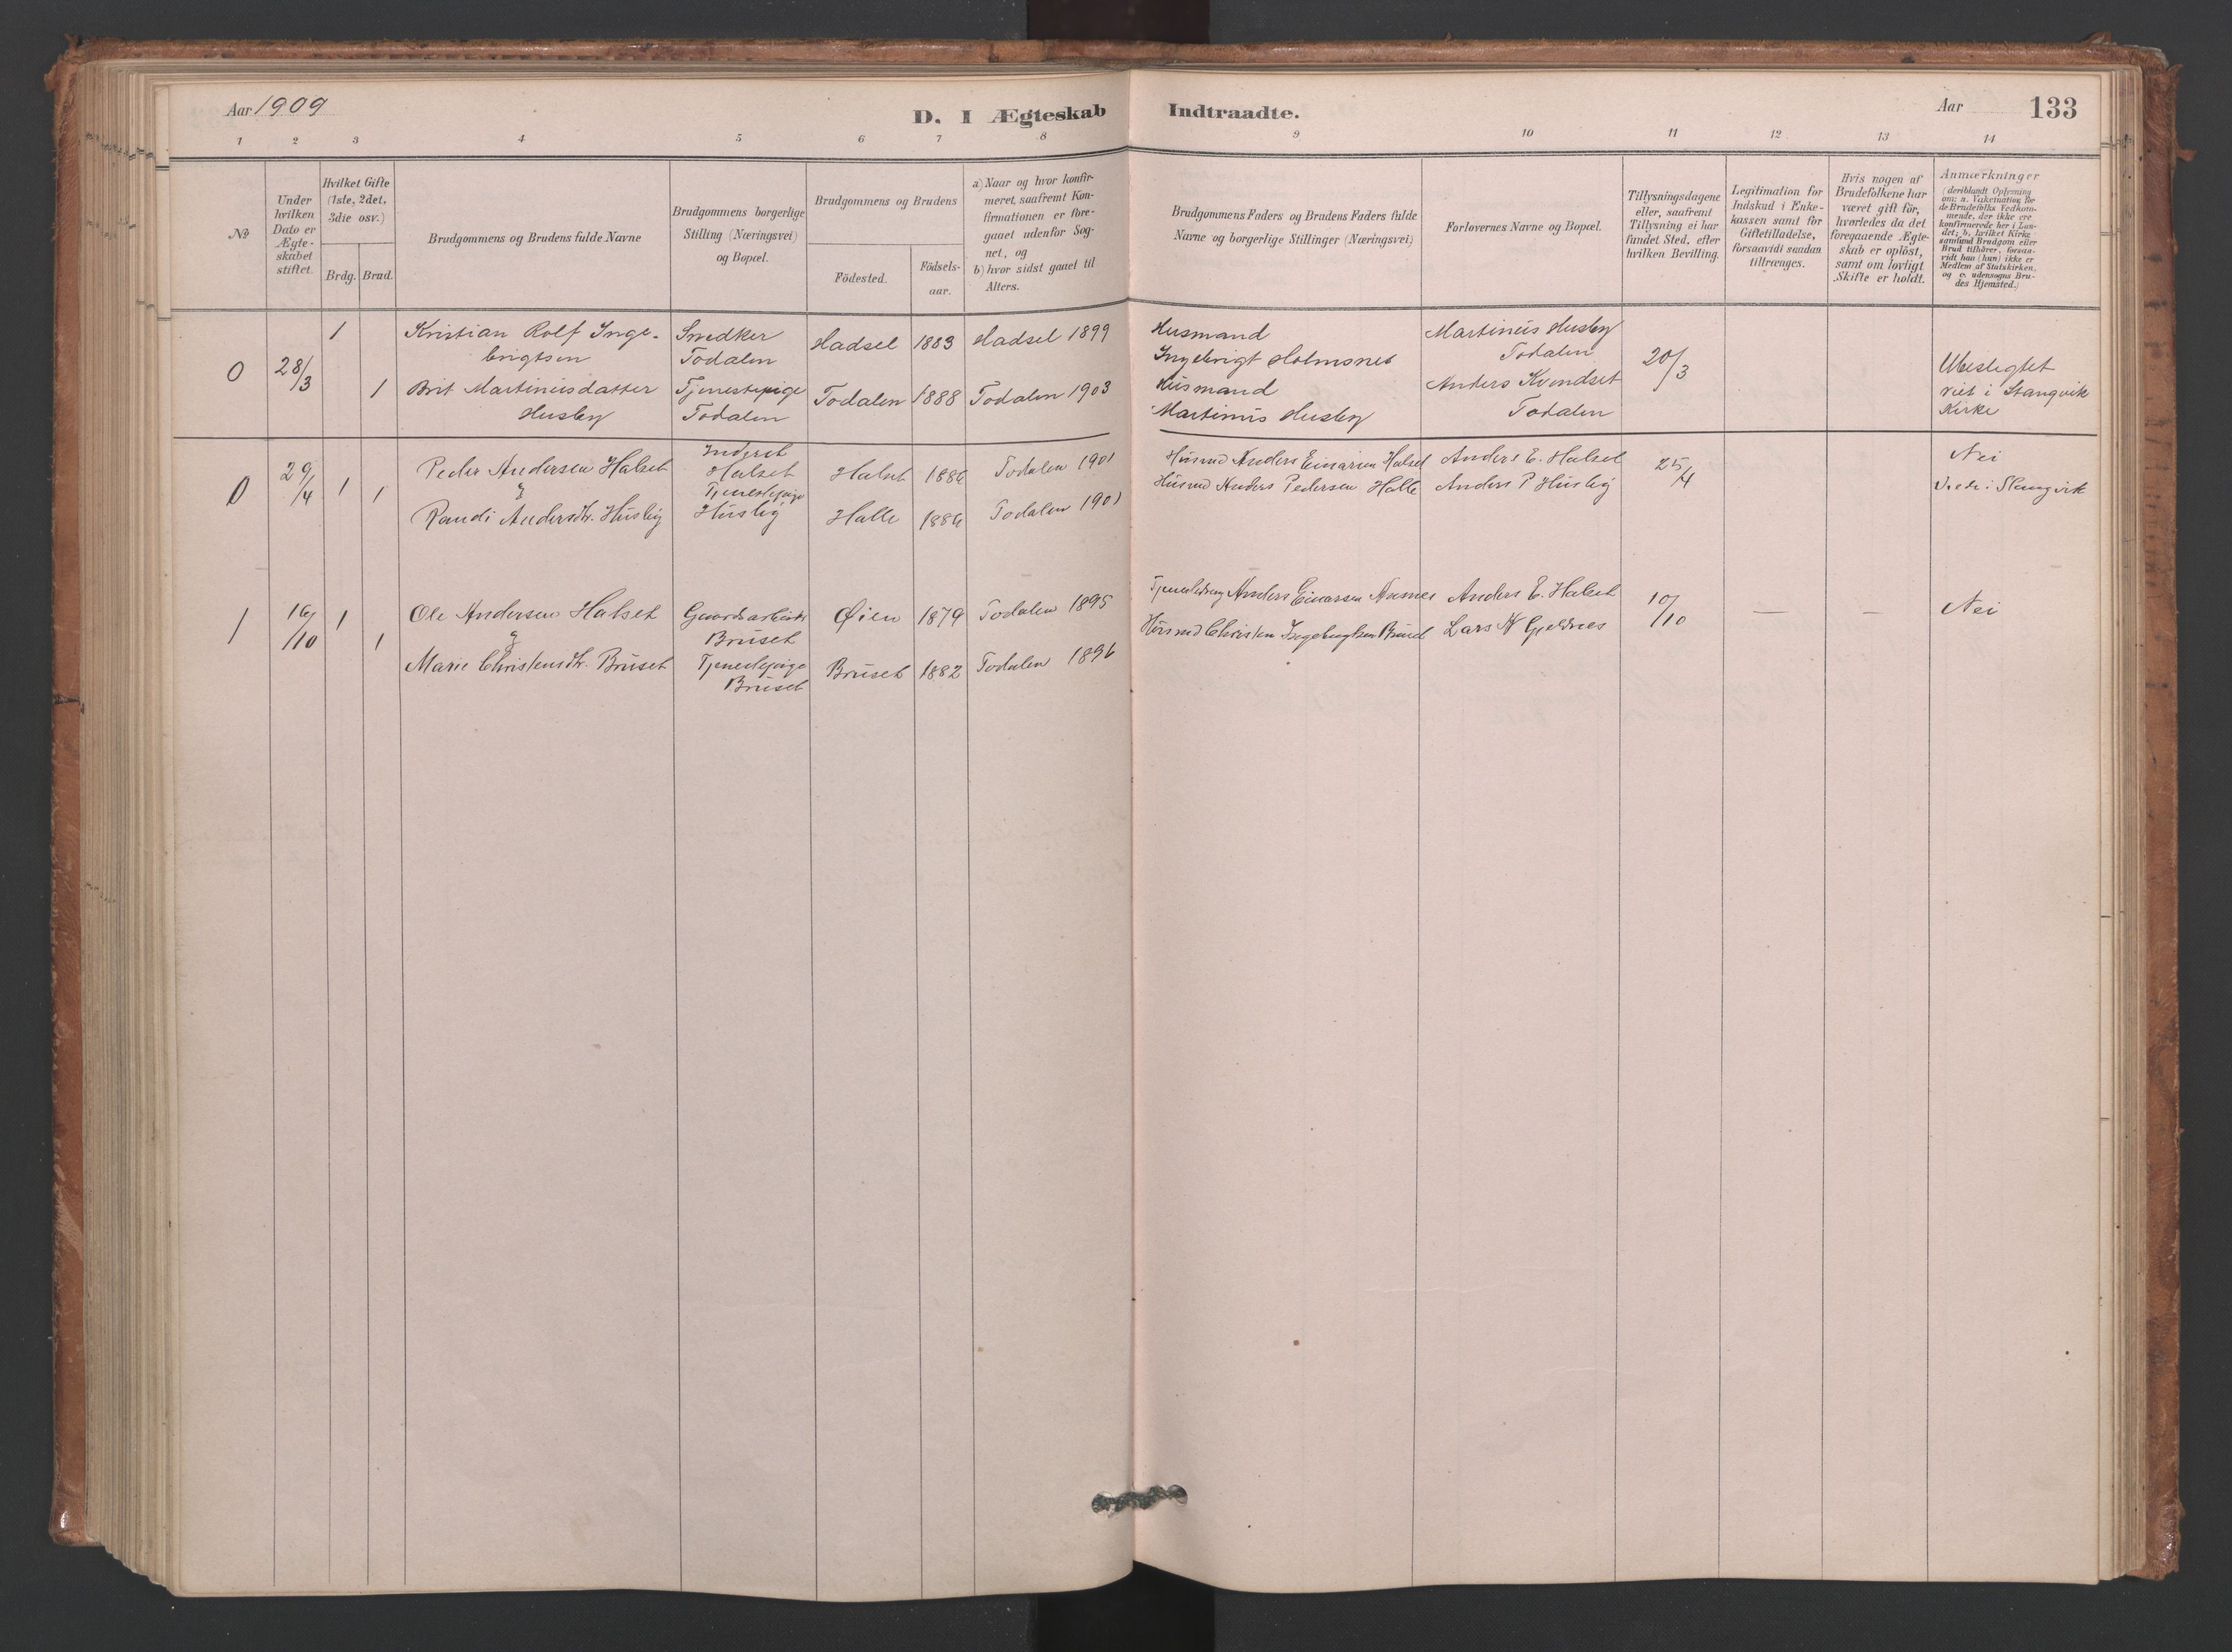 Aar 1909
D. I Ægteskab Indtraadte.
Aar 133
1 2 3 4 5 6 7 8 9 10 11 12 13 14
No
Under hvilken Dato er Ægte-skabet stiftet.
Hvilket Gifte (1ste, 2det, 3die osv.)
Brdg. Brud.
Brudgommens og Brudens fulde Navne
Brudgommens borgerlige Stilling (Næringsvei) og Bopæl.
Brudgommens og Brudens
Födested.
Födsels-aar.
a) Naar og hvor konfir-meret, saafremt Kon-firmationen er fore-gaaet udenfor Sog-net, og
b) hvor sidst gaaet til Alters.
Brudgommens Faders og Brudens Faders fulde Navne og borgerlige Stillinger (Næringsvei)
Forlovernes Navne og Bopæl.
Tillysningsdagene eller, saafremt Tillysning ei har fundet Sted, efter hvilken Bevilling.
Legitimation for Indskud i Enke-kassen samt for Giftetilladelse, forsaavidt saadan tiltrænges.
Hvis nogen af Brudefolkene har været gift för, hvorledes da det foregaaende Ægte-skab er oplöst, samt om lovligt Skifte er holdt.
Anmærkninger
(deriblandt Oplysning om: a. Vakcination for de Brudefolks Vedkom-mende, der ikke ere konfirmerede her i Lan-det; b. hvilket Kirke-samfund Brudgom eller Brud tilhörer, forsaa-vidt han (hun) ikke er Medlem af Statskirken, og c. udensogns Bru-des Hjemsted.)
0 28/3 1 Kristian Rolf Inge-
brigtsen
Snedker
Todalen
Hadsel 1883 Hadsel 1899
Husmand
Ingebrigt Holmsnes
Martinus Husby
Todalen
20/3
Ubeslegtet
viet i Stangvik
Kirke
1 Brit Martinusdatter
Husby
Tjenestepige
Todalen
Todalen 1888 Todalen 1903
Husmand
Martinus Husby
Anders Kvendset
Todalen
0 29/4 1 1 Peder Andersen Halset
&
Randi Andersdtr. Husby
Inderst
Halset
Tjenestepige
Husby
Halset 1886 Todalen 1901
Halle 1886 Todalen 1901
Husmd Anders Einarsen Halset
Husmd Anders Pedersen Halle
Anders E. Halset
Anders P Husby
25/4
Nei
Viede i Stangvik
1 16/10 1 1 Ole Andersen Halset
&
Marie Christensdtr. Bruset
Gaardsarbeider
Bruset
Tjenestepige
Bruset
Øien 1879 Todalen 1895
Bruset 1882 Todalen 1896
Tjenestedreng Anders Einarsen
Husmd Christen Ingebrigtsen Bruset
Anders E. Halset
Lars N Gjeldnes
10/10
— —
Nei